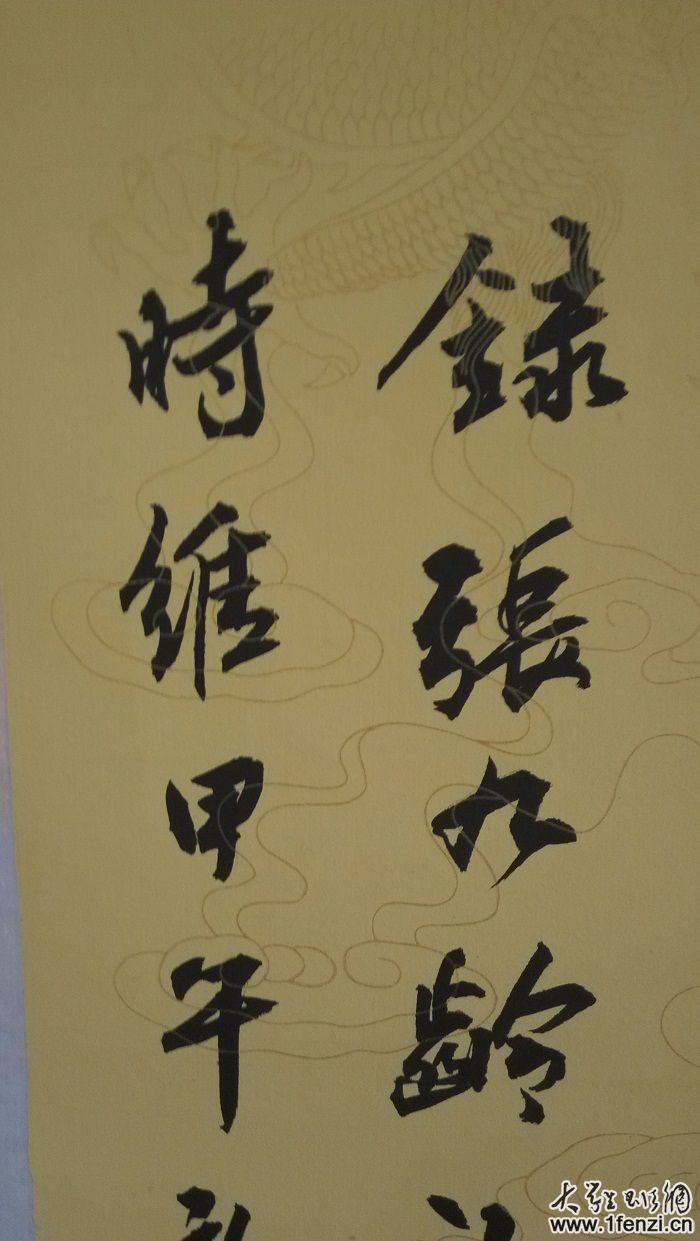 録張九齡
時維甲午
大学生书法網
www.1fenzi.cn